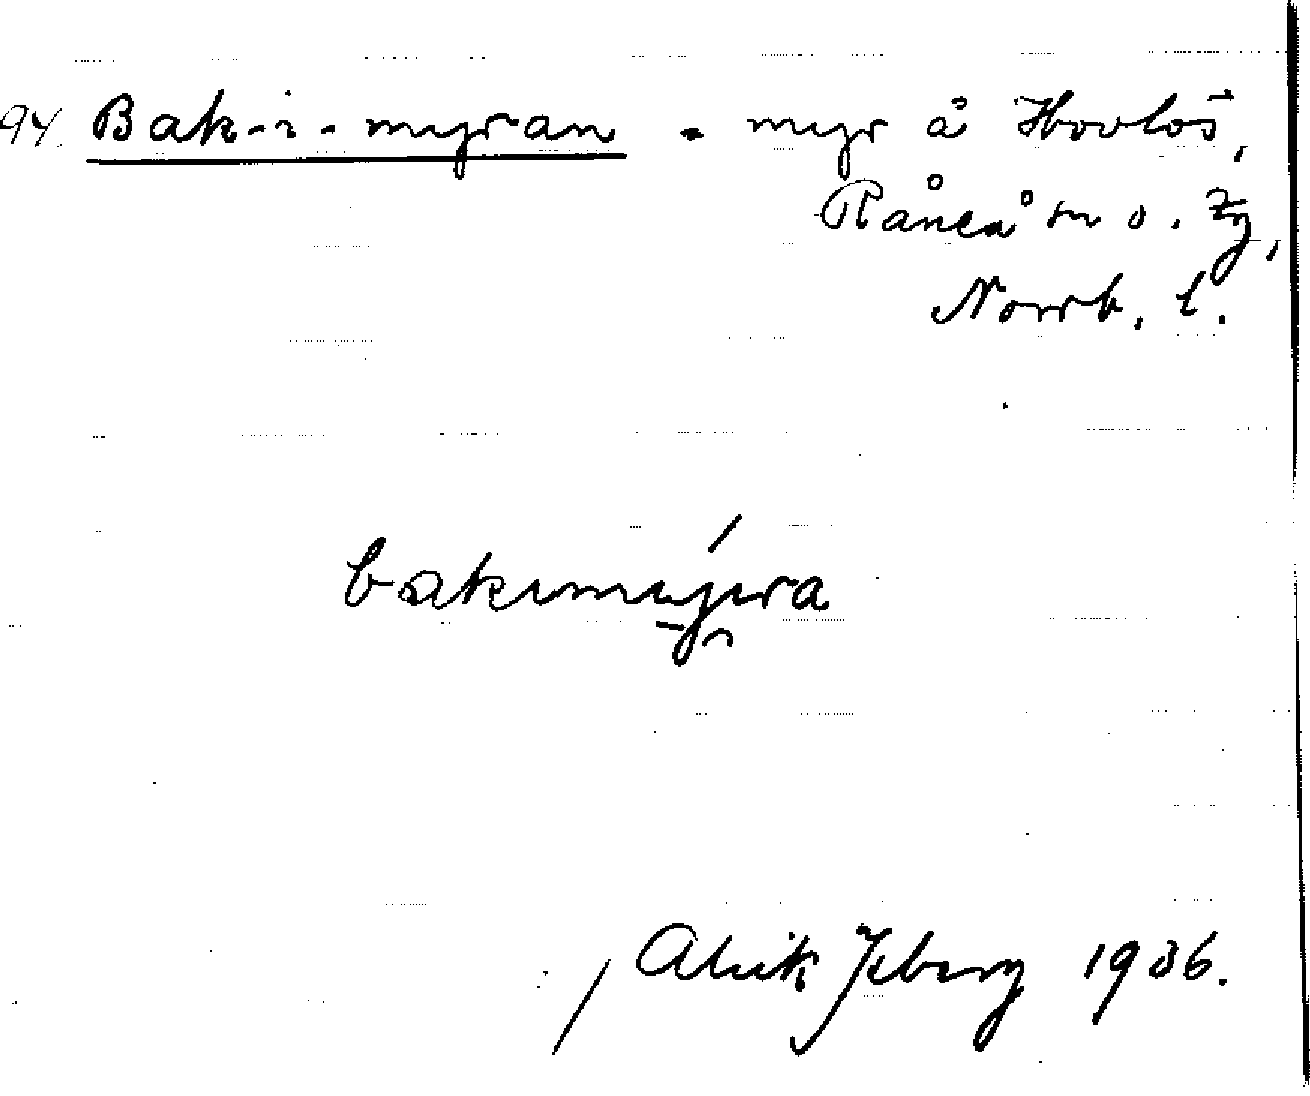 94. Bak-i-myran - myr å Hovlös,
Råneå sn o. tg,
Norrb. l.
bakımýra
Alrik Isberg 1936.